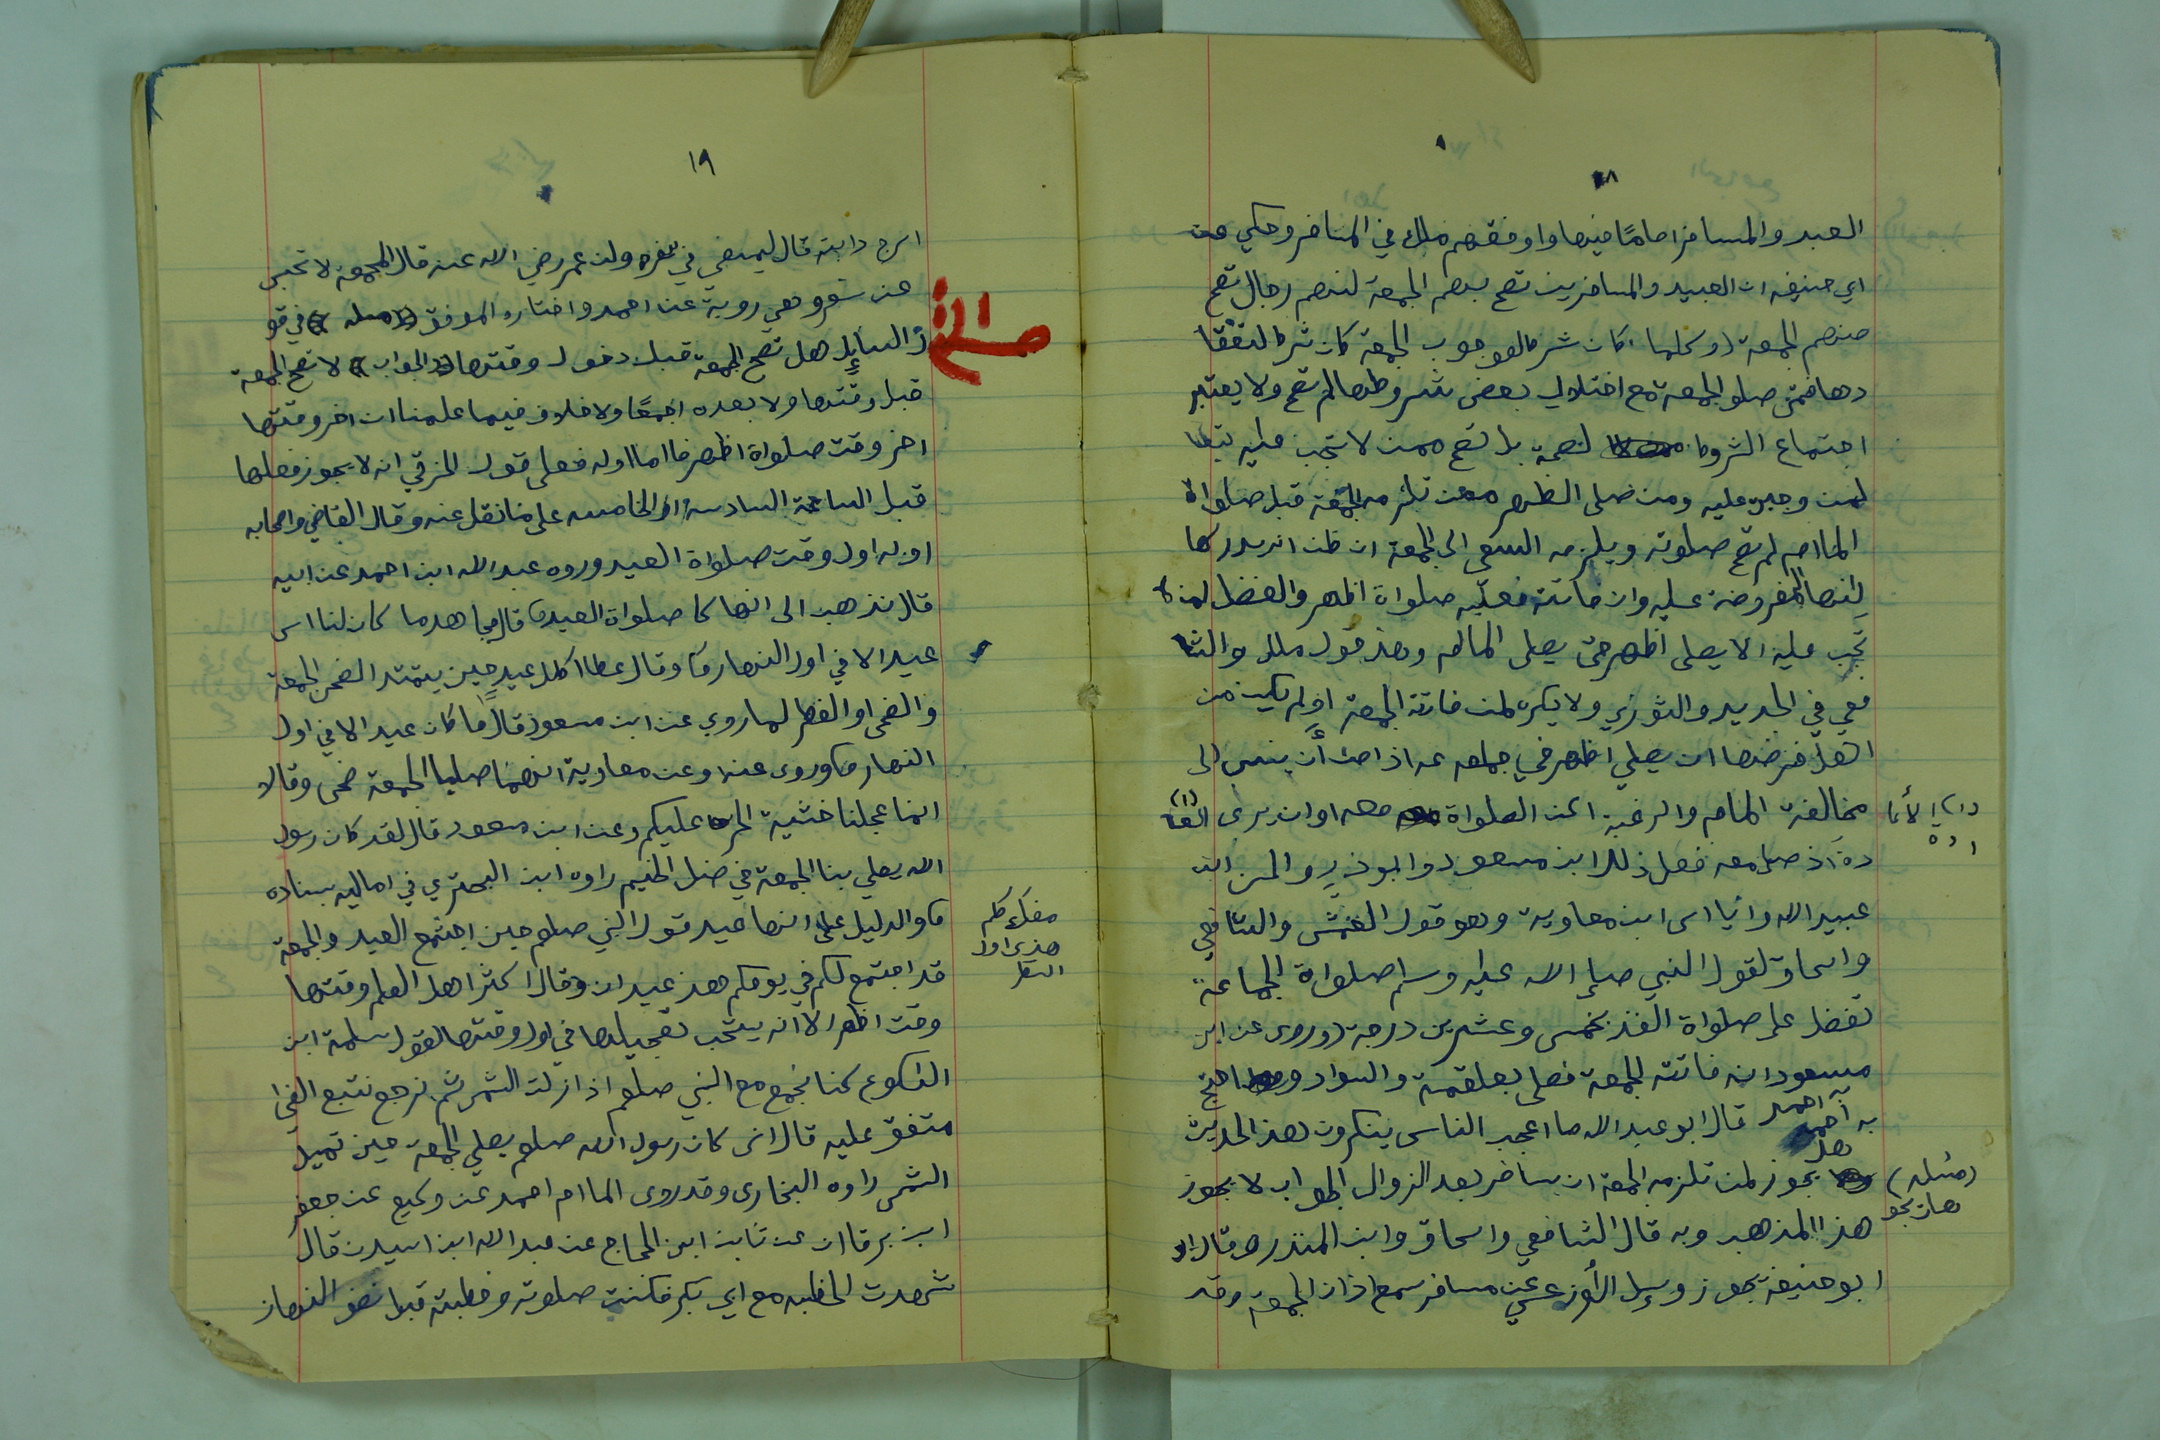 ١٨
العبد والمسافر اماما فيها واوفقهم ملك في المسافر وحكي عن
ابي حنيفه ان العبيد والمسافرين تصح بهم الجمعة لنهم رجال تصح
منهم الجمعة ولكلما كان شرطا لوجوب الجمعة كان شرط لنعقا
دها فمتى صلو الجمعة مع اختلال بعض شروطها لم تصح ولا يعتبر
اجتماع الشروط لصحة بل تصح ممن لا تجب عليه تبعا
لمن وجبة عليه ومن صلى الظهر ممن تلزمه الجمعة قبل صلواة
الماام لم تصح صلوته ويلزمه السعى الى الجمعة ان ظن انه يدركها
لنها المفروضة عليه وان فاتته فعليه صلواة اظهر والفضل لمن لا
تجب عليه الا يصلى اظهر حتى يصلى المام وهذ قول ملك والشا
فعي في الجديد والثوري ولا يكره لمن فاتة الجمعة او لم يكن من
اهل فرضها ان يصلي اظهر في جماعه اذا امن أن ينسى الى
مخالفة المام والرغبة اعن الصلواة معه اوان يرى العا (١)
(١) الأعا
ادة
دة اذ صلى معه فعل ذلك ابن مسعود وابو ذر والحسن ابن
عبيد الله وايااس ابن معاوية وهو قول العمش والشافعي
واسحاق لقول النبي صلى الله عليه وسلم صلواة الجماعة
تفضل على صلواة الفذ بخمس وعشرين درجة وروى عن ابن
مسعود انه فاتته الجمعة فصلى بعلقمة والسواد واحتج
به احمد قال ابو عبد الله ما اعجب الناس ينكرون هذ الحديث
(مسئله)
هل يجو
هل يجوز لمن تلزمه الجمعة ان يسافر بعد الزوال الجواب لا يجوز
هذا المذهب وبه قال الشافعي واسحاق وابن المنذر وقال
ابو حنيفة يجوز وسئل الأوزعي عن مسافر سمع اذان الجمعة وقد
١٩
اسرج دابته قال ليمضي في سفره ولن عمر رضي الله عنه قال الجمعة لا تحبس
عن سفر وهي روية عن احمد واختاره الموفق (مسله) في قو
ل السايل هل تصح الجمعة قبل دخول وقتها (الجواب) لا تصح الجمعة
صلاة
قبل وقتها ولا بعده اجمعا ولا خلاف فيما علمنا ان اخر وقتها
اخر وقت صلواة اظهر فااما اوله فعلى قول الخرقي انه لا يجوز فعلها
قبل الساعة السادسة او الخامسه على ما نقل عنه وقال القاضي واصحابه
اوله اول وقت صلواة العيد وروه عبد الله ابن احمد عن ابيه
قال نذهب الى انها كا صلواة العيد قال مجاهد ما كان لنااس
عيد الا في اول النهار وقال عطا كل عيد حين يمتد الضحى الجمعة
والضحى او الفطر لما روي عن ابن مسعود قال ما كان عيد الا في اول
النهار وروى عنه وعن معاوية انهما صليا الجمعة ضحى وقالا
انما عجلنا خشية الحر عليكم وعن ابن مسعود قال لقد كان رسول
الله يصلي بنا الجمعة في ضل الحطيم راوه ابن البحتري في اماليه بسناده
والدليل على انها عيد قول النبي صلعم حين اجتمع العيد والجمعة
قد اجتمع لكم في يومكم هذ عيدان وقال اكثر اهل العلم وقتها
وقت اظهر الا انه يستحب تعجيلها في اول وقتها لقول سلمة ابن
الاكوع كنا نجمع مع النبي صلعم اذا زلت الشمس ثم نرجع نتبع الفئ
متفق عليه قال انس كان رسول الله صلعم يصلي الجمعة حين تميل
الشمس راوه البخارى وقد روى الماام احمد عن وكيع عن جعفر
ابن برقاان عن ثابت ابن الحجاج عن عبد الله ابن اسيدن قال
شهدت الخطبه مع ابي بكر فكنت صلوته وخطبته قبل نصف النهاز